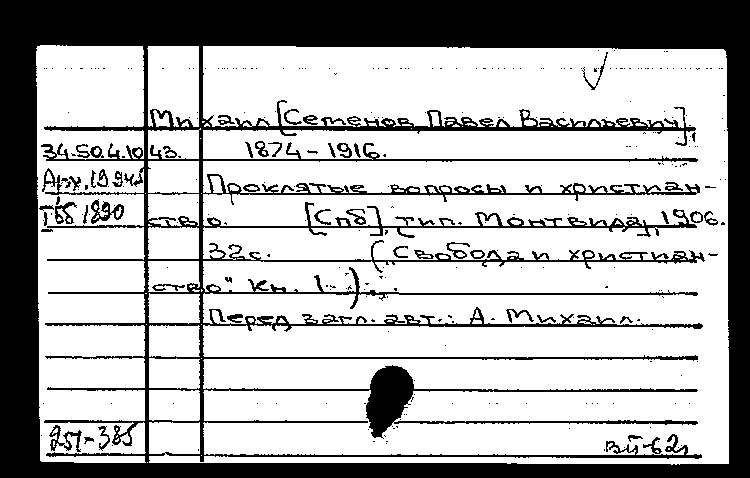 Михаил [Семенов, Павел Васильевич],
34.50.4.10 43. 1874-1916.
Арх. Проклятые вопросы и христиан-
ТбБ 1890 ство. [Спб], тип. Монтвида, 1906.
32с. („Свобода и христиан-
ство". Кн. 1.)...
Перед загл. авт.: А. Михаил.
251-385